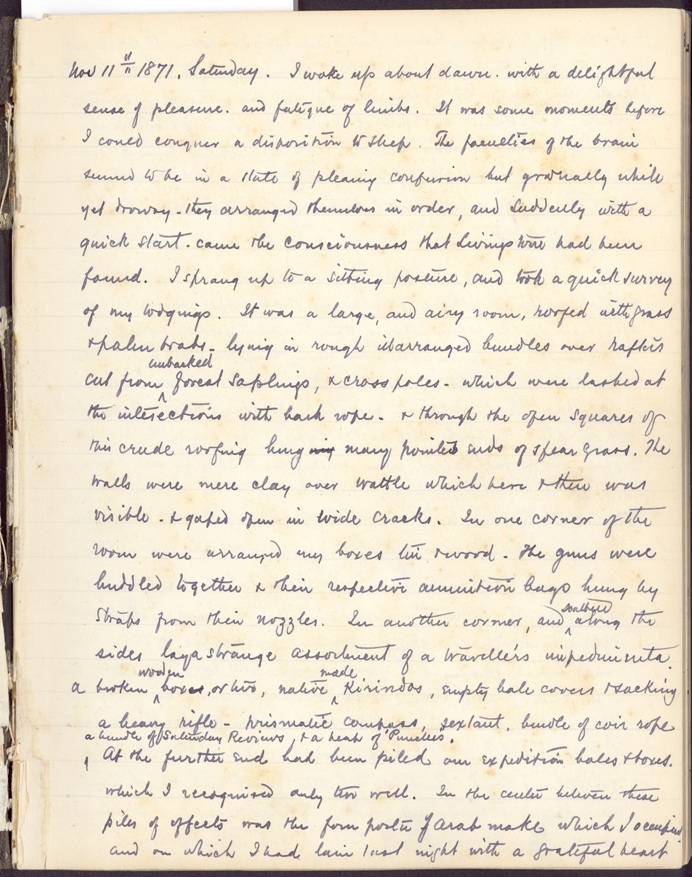 Nov 11th 1871. Saturday. I woke up about dawn. with a delightful
sense of pleasure. and fatigue of limbs. It was some moments before
I could conquer a disposition to sleep. The faculties of the brain
seemed to be in a state of pleasing confusion but gradually while
yet drowsy - they arranged themselves in order, and suddenly with a
quick start. came the consciousness that Livingstone had been
found. I sprang up to a sitting posture, and took a quick survey
of my lodgings. It was a large, and airy room, roofed with grass
& palm - lying in rough ill arranged bundles over rafters
unbarked
cut from forest saplings, & cross poles - which were lashed at
the intersections with bark rope. - & through the open squares of
this crude roofing hung many pointed ends of spear grass. The
walls were mere clay over wattle which here & there was
visible - & gaped open in wide cracks. In one corner of the
room were arranged my boxes tin & wood - The guns were
huddled together & their respective ammunition bags hung by
straps from their nozzles. In another corner, and scattered along the
sides lay a strange assortment of a traveller's impedimenta.
wooden made
a broken boxes, or two, native Kirindos, empty bale covers & sacking
a heavy rifle - prismatic compass, sextant, bundle of coir rope
a bundle of Saturday Reviews, & a heap of 'Punches'.
At the further end had been piled our expedition bales & boxes.
which I recognised only too well. In the center between these
piles of effects was the four poster of Arab make which I occupied
and on which I had lain last night with a grateful heart